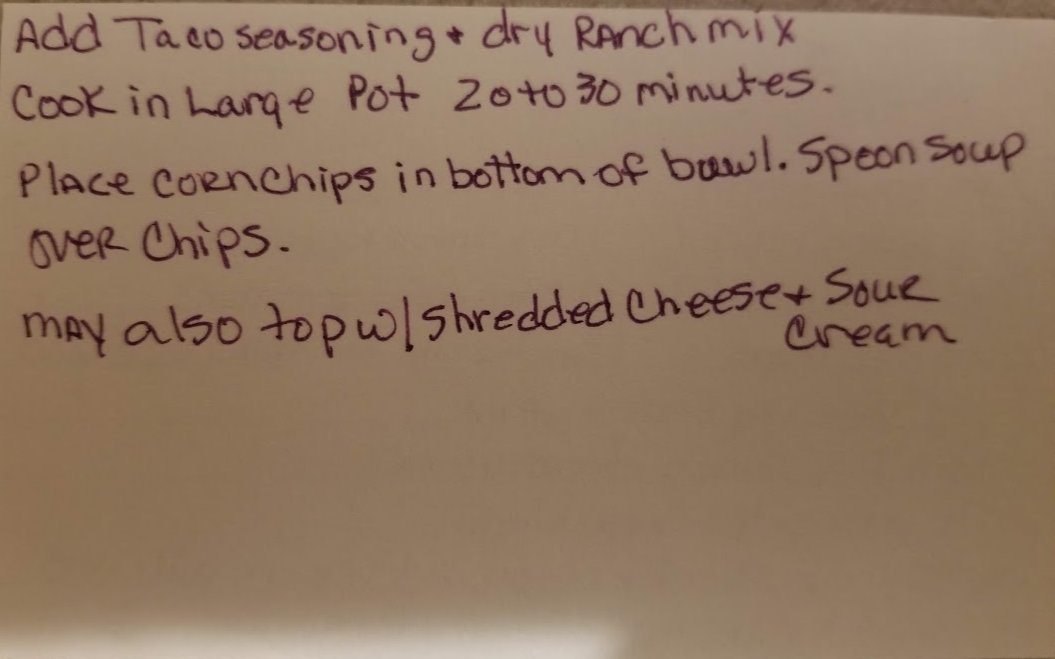 Add Taco seasoning + dry Ranch mix
Cook in Large Pot 20 to 30 minutes.
Place cornchips in bottom of bowl. Spoon Soup
over Chips.
may also top w/ shredded Cheese + Sour
Cream